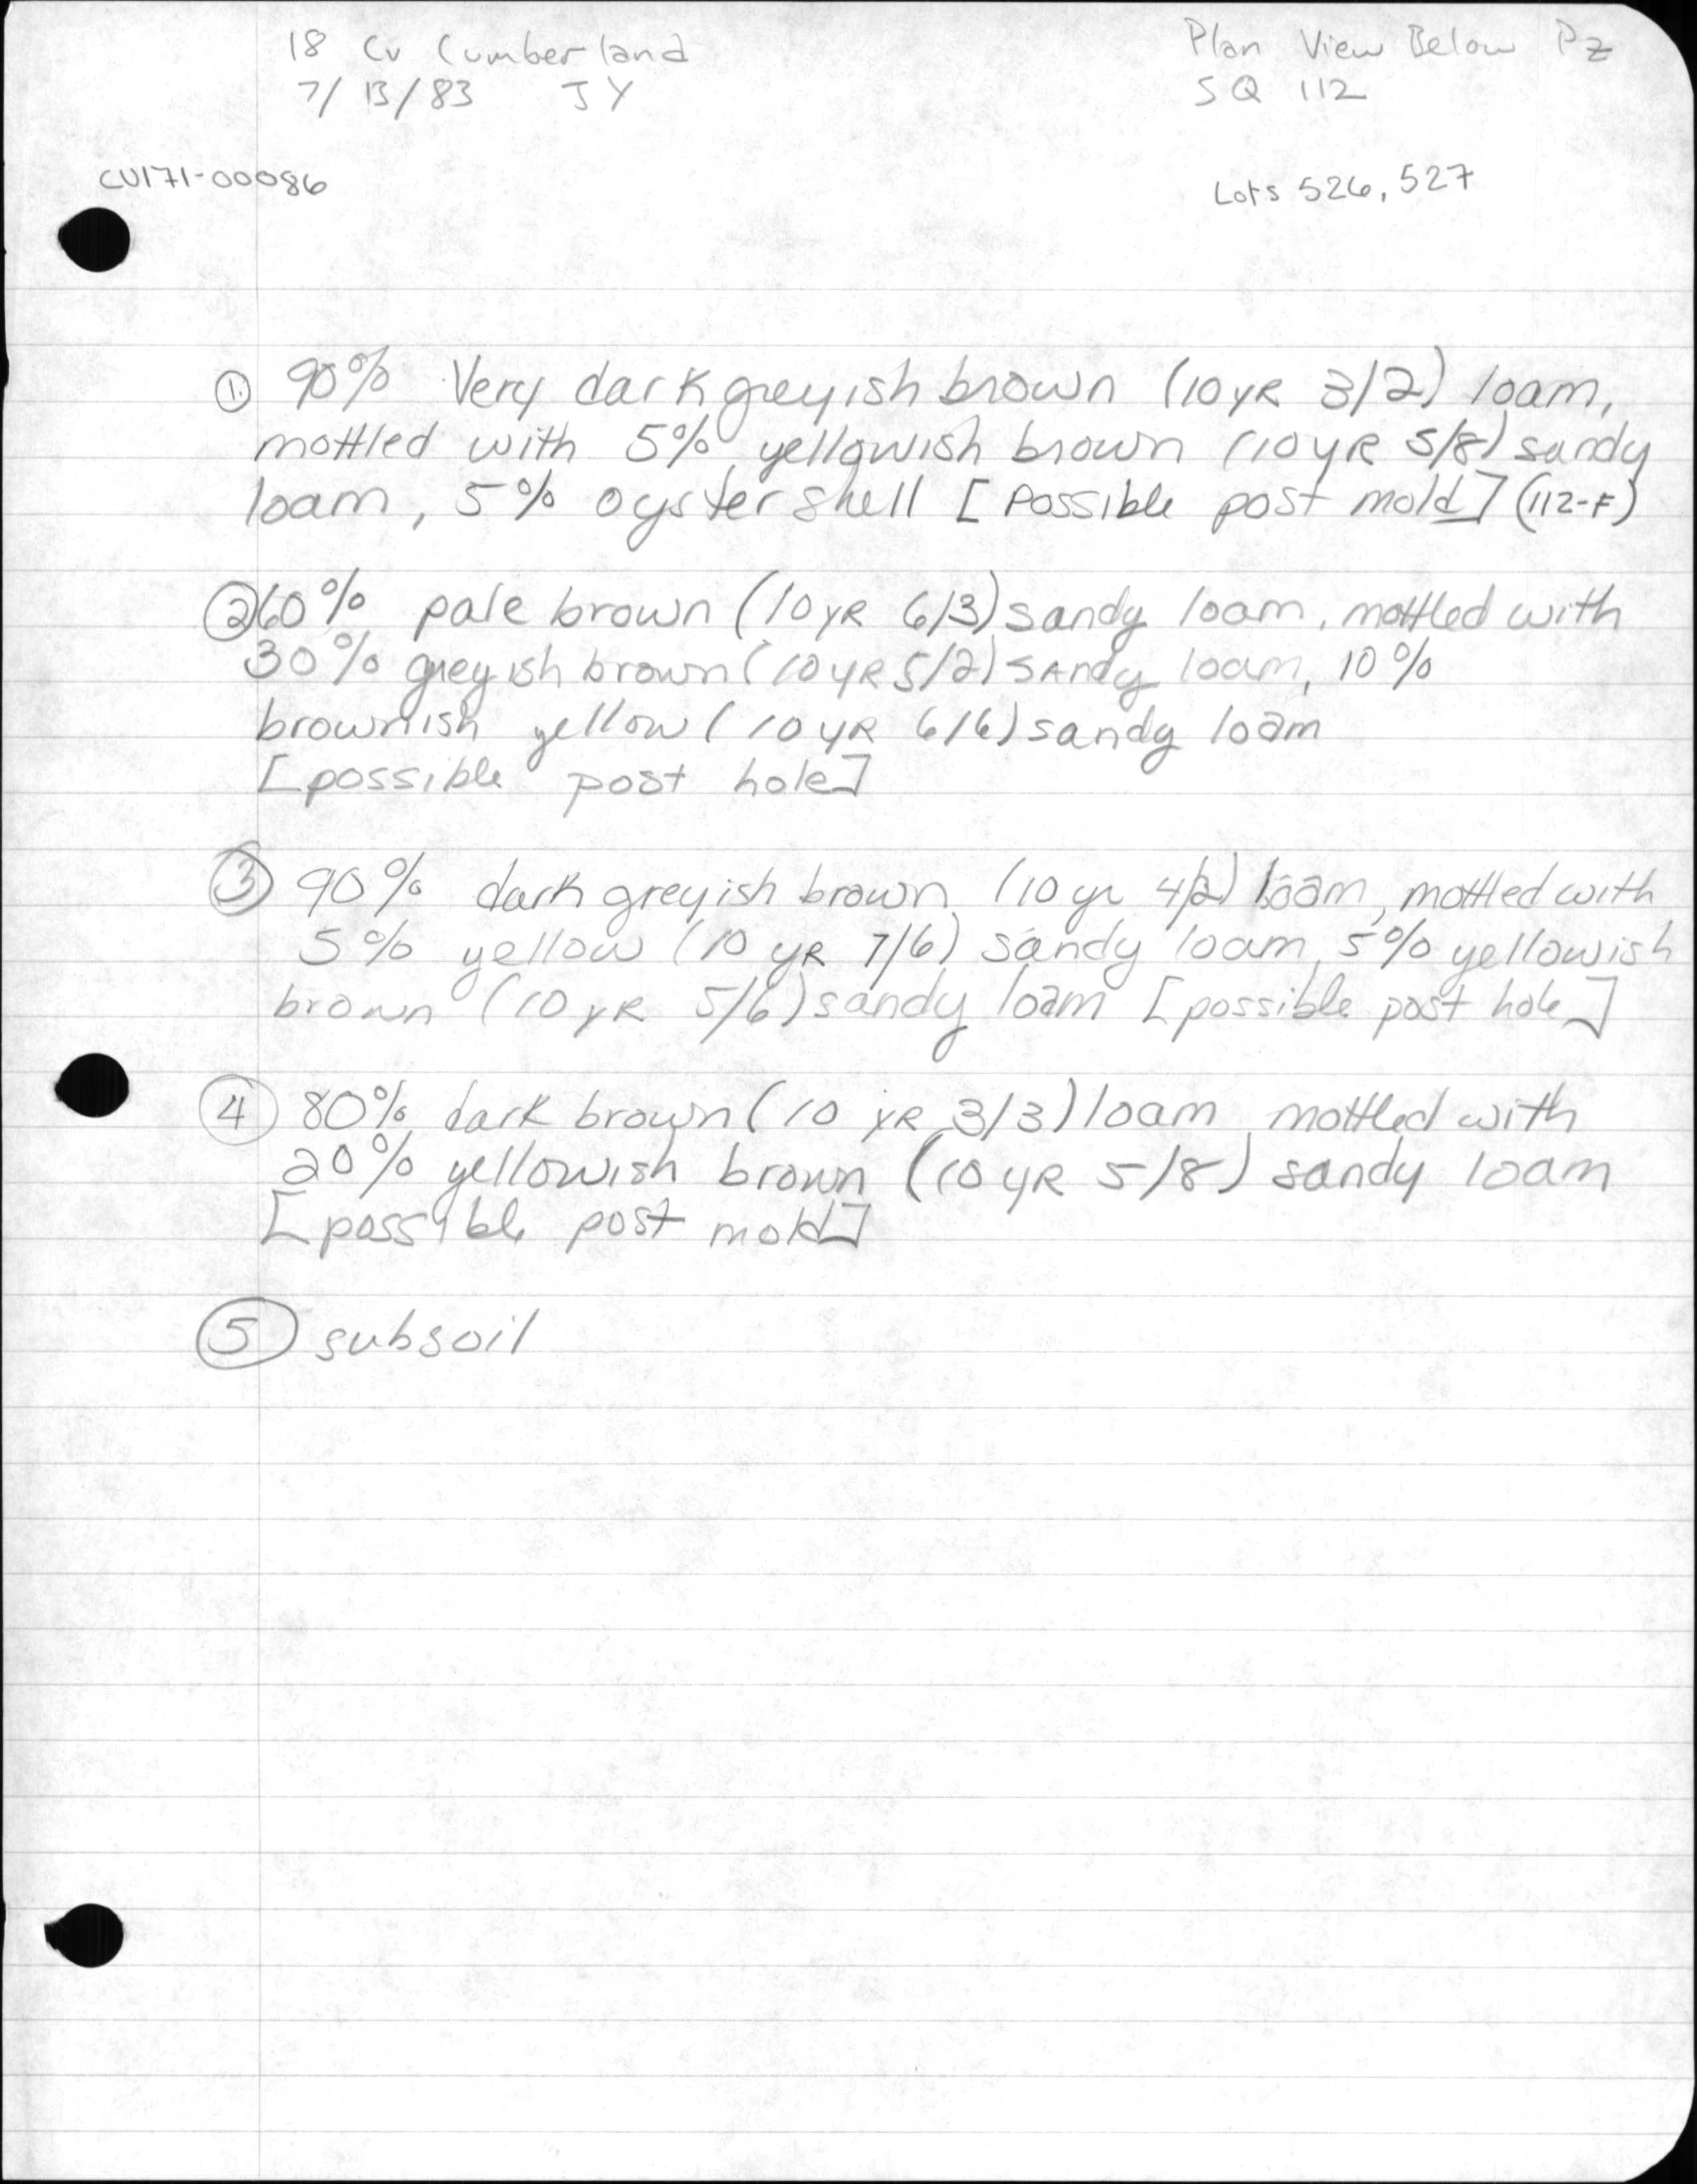 18 Cv Cumberland
7/13/83 JY
Plan View Below Pz
SQ 112
CV171-00086
Lots 526, 527
① 90% Very dark greyish brown (10 YR 3/2) loam,
mottled with 5% yellowish brown (10 YR 5/8) sandy
loam, 5% oyster shell [Possible post mold] (112-F)
② 60% pale brown (10 YR 6/3) sandy loam, mottled with
30% greyish brown (10 YR 5/2) sandy loam, 10%
brownish yellow (10 YR 6/6) sandy loam
[possible post hole]
③ 90% dark greyish brown (10 yr 4/2) loam, mottled with
5% yellow (10 YR 7/6) sandy loam, 5% yellowish
brown (10 YR 5/6) sandy loam [possible post hole]
④ 80% dark brown (10 YR 3/3) loam mottled with
20% yellowish brown (10 YR 5/8) sandy loam
[possible post mold]
⑤ subsoil